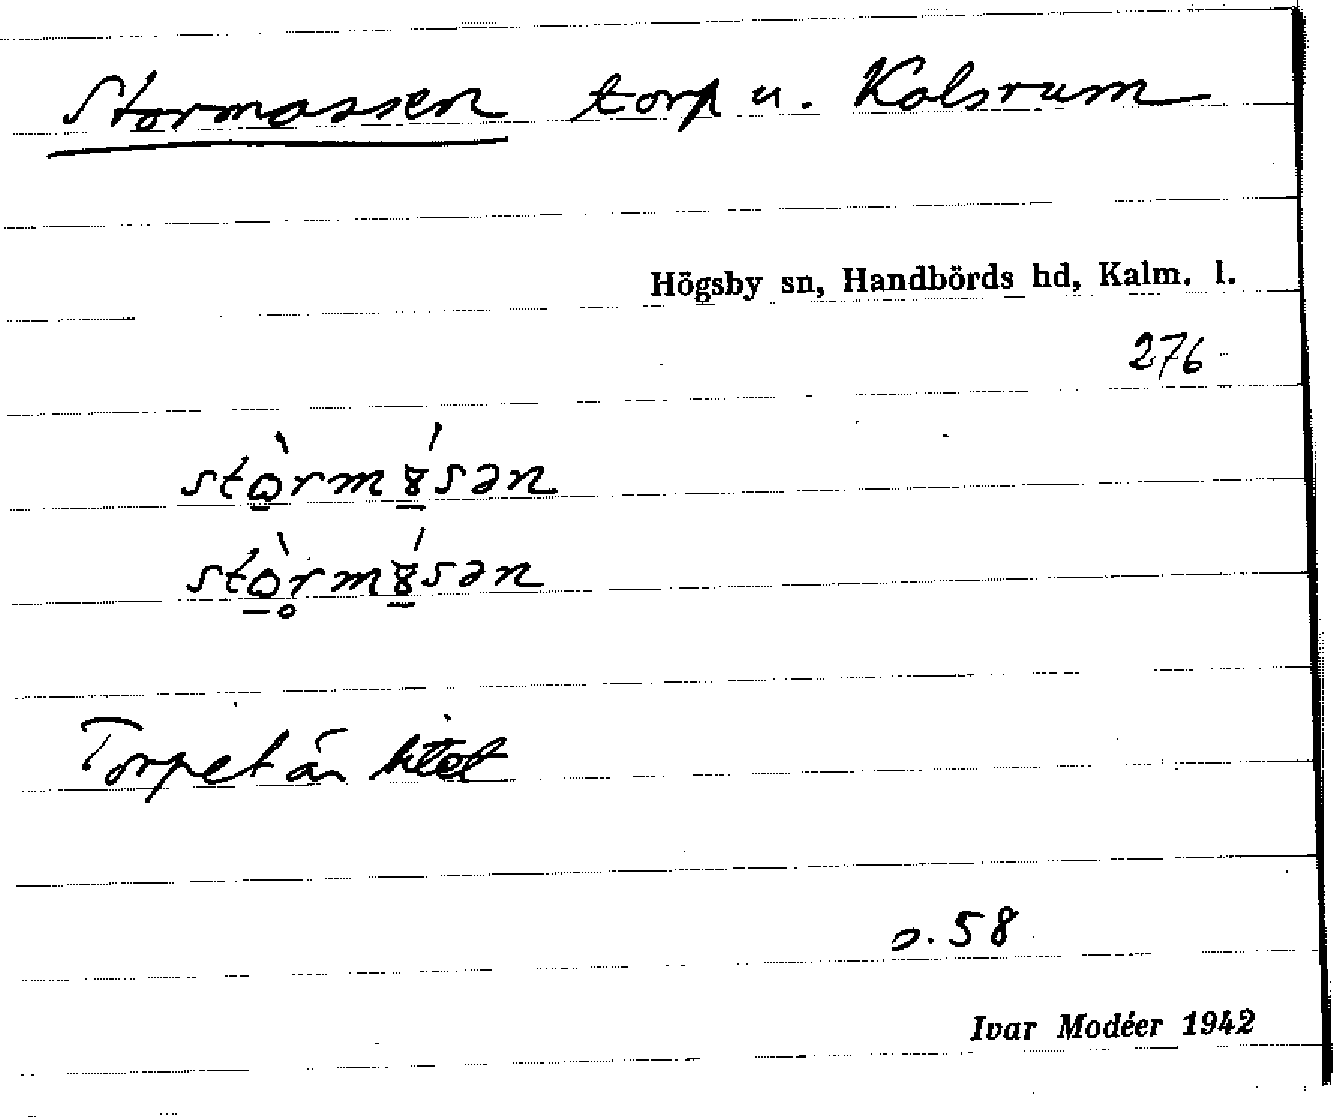 Stormossen torp u. Kolsrum
Högsby sn, Handbörds hd, Kalm. l.
276
Torpet är litet
s. 58
Ivar Modéer 1942